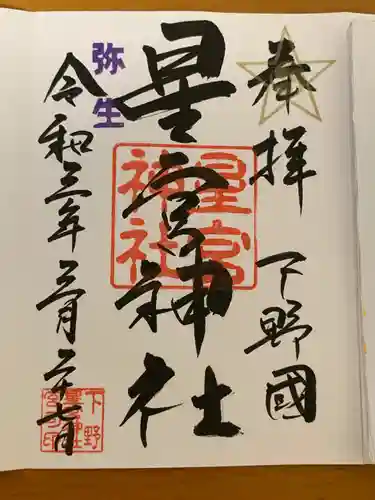 奉拝 下野國
星宮神社
弥生
令和三年三月二十七日
星宮
神社
下野
星宮神社
宮司之印